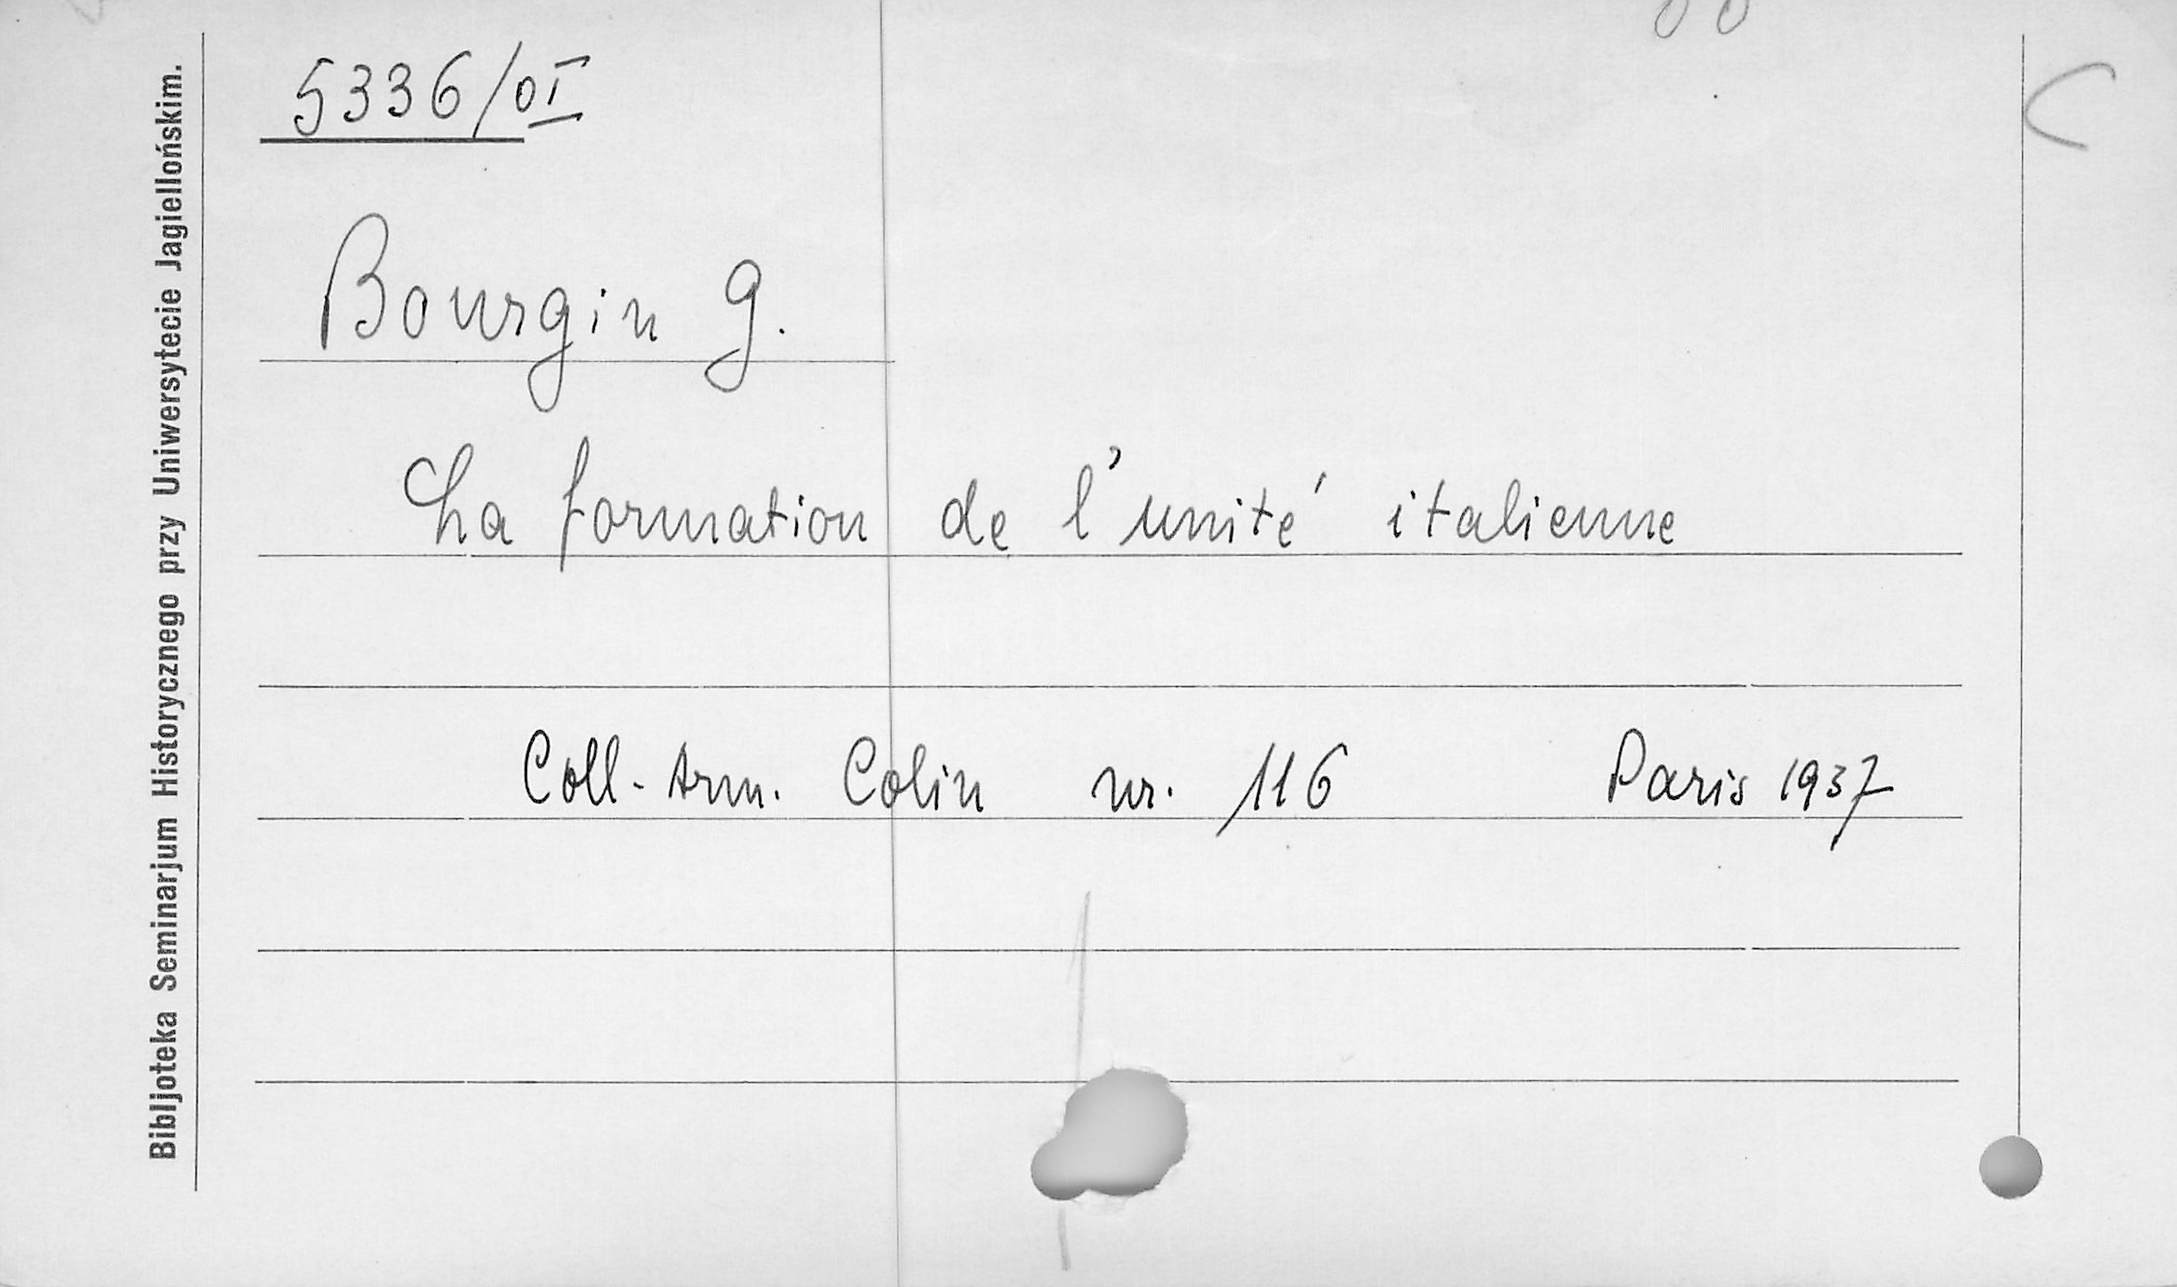 5336/oI
Bourgin G.
La formation de l'unité italienne
Coll. Arm. Colin nr. 116 Paris 1937
Bibljoteka Seminarjum Historycznego przy Uniwersytecie Jagiellońskim.